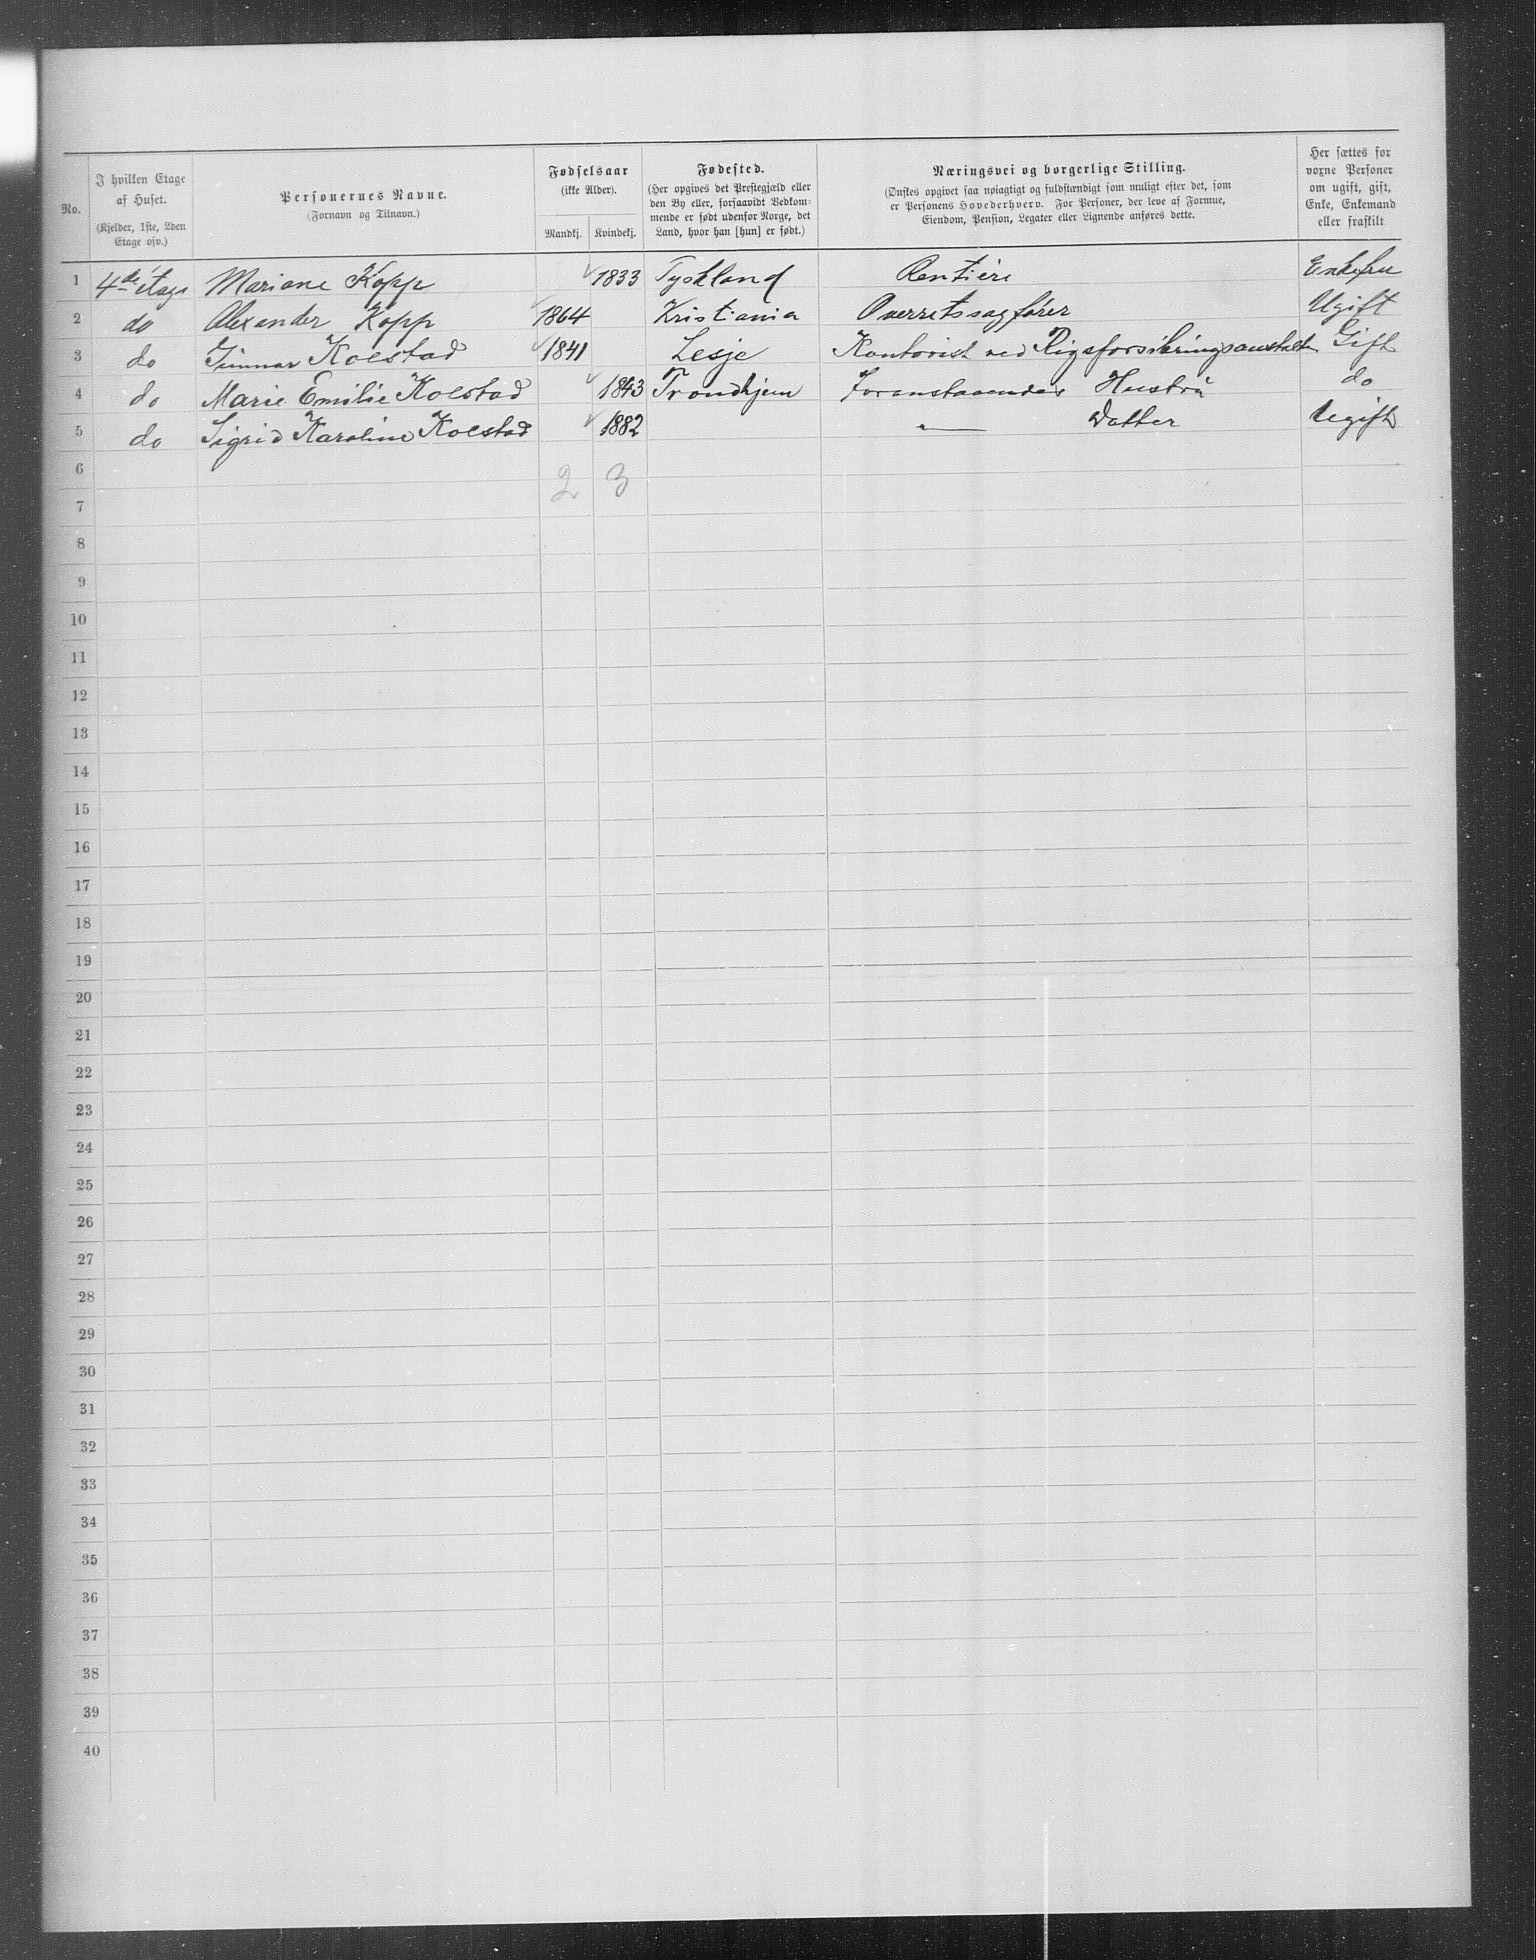 No. | I hvilken Etage af Huset. (Kjelder, 1ste, 2den Etage osv.) | Personernes Navne. (Fornavn og Tilnavn.) | Fødselsaar (ikke Alder). Mandkj. | Kvindekj. | Fødested. (Her opgives det Prestegjæld eller den By eller, forsaavidt Bedkommende er født udenfor Norge, det Land, hvor han [hun] er født.) | Næringsvei og borgerlige Stilling. (Ønskes opgivet saa nøiagtigt og fuldstændigt som muligt efter det, som er Personens Hovederhverv. For Personer, der leve af Formue, Eiendom, Pension, Legater eller Lignende anføres dette. | Her sættes for vorne Personer om ugift, gift, Enke, Enkemand eller fraskilt
1 | 4de étage | Mariane Kopp | | 1833 | Tyskland | Rentière | Enkefru
2 | do | Alexander Kopp | 1864 | | Kristiania | Overretssagfører | Ugift
3 | do | Kolstad | 1841 | | Lesje | Kontorist ved Rigsforsikringsanstalten | Gift
4 | do | Marie Emilie Kolstad | | 1843 | Trondhjem | Foranstaaendes Hustru | do
5 | do | Sigrid Karoline Kolstad | | 1882 | | — Datter | Ugift
6 | | | 2 | 3
7
8
9
10
11
12
13
14
15
16
17
18
19
20
21
22
23
24
25
26
27
28
29
30
31
32
33
34
35
36
37
38
39
40